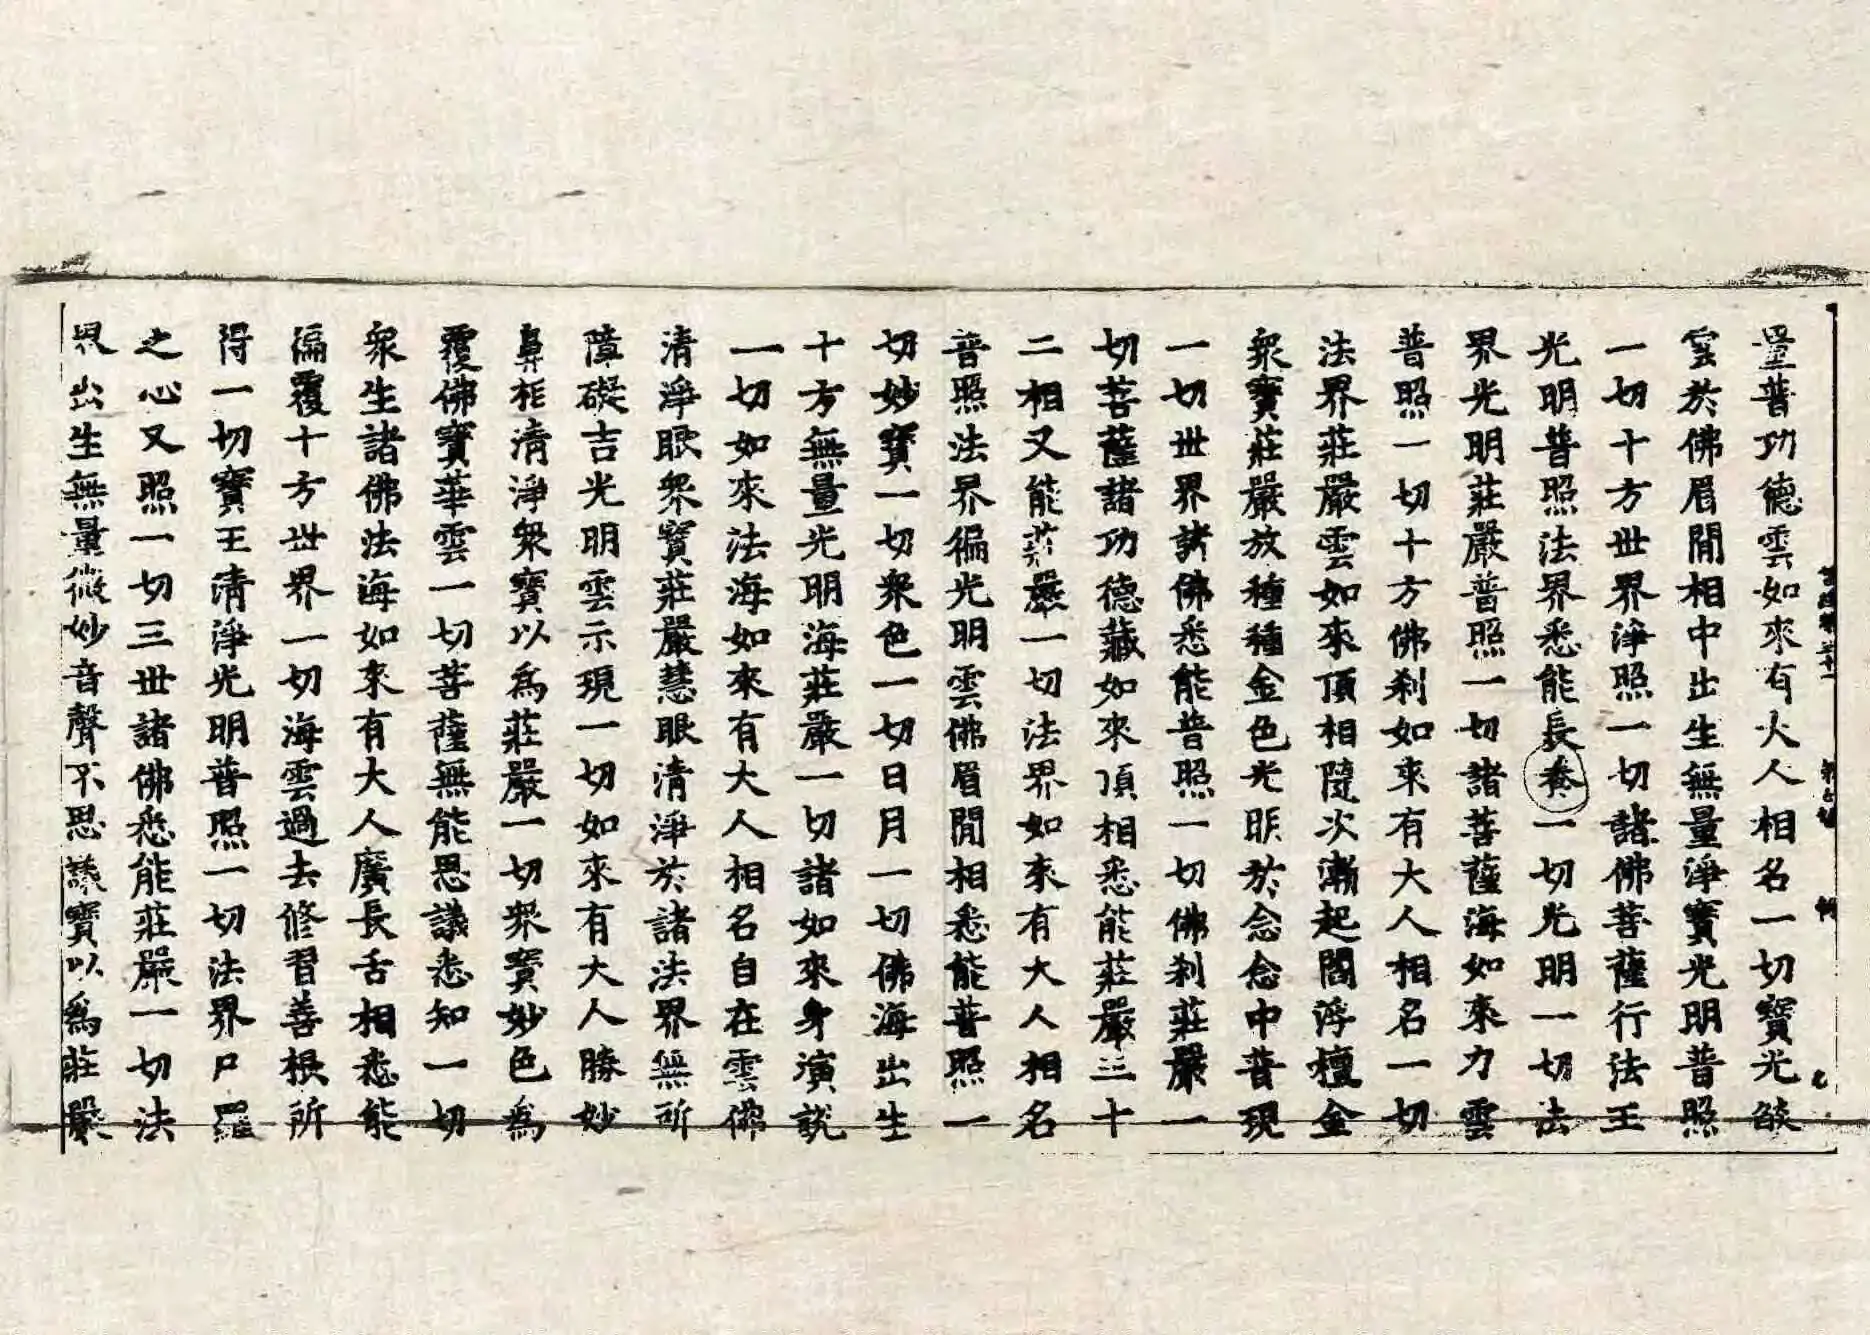 量普功德雲如來有大人相名一切寶光燄
雲於佛眉間相中出生無量淨寶光明普照
一切十方世界淨照一切諸佛菩薩行法王
光明普照法界悉能長養一切光明一切法
界光明莊嚴普照一切諸菩薩海如來力雲
普照一切十方佛刹如來有大人相名一切
法界莊嚴雲如來頂相隨次漸起閻浮檀金
眾寶莊嚴放種種金色光眼於念念中普現
一切世界諸佛悉能普照一切佛刹莊嚴一
切菩薩諸功德藏如來頂相悉能莊嚴三十
二相又能莊嚴一切法界如來有大人相名
普照法界徧光明雲佛眉間相悉能普照一
切妙寶一切眾色一切日月一切佛海出生
十方無量光明海莊嚴一切諸如來身演說
一切如來法海如來有大人相名自在雲佛
清淨眼眾寶莊嚴慧眼清淨於諸法界無所
障礙吉光明雲示現一切如來有大人勝妙
鼻相清淨眾寶以為莊嚴一切眾寶妙色為
覆佛寶華雲一切菩薩無能思議悉知一切
眾生諸佛法海如來有大人廣長舌相悉能
徧覆十方世界一切海雲過去修習善根所
得一切寶王清淨光明普照一切法界尸羅
之心又照一切三世諸佛悉能莊嚴一切法
界出生無量微妙音聲不思議寶以為莊嚴